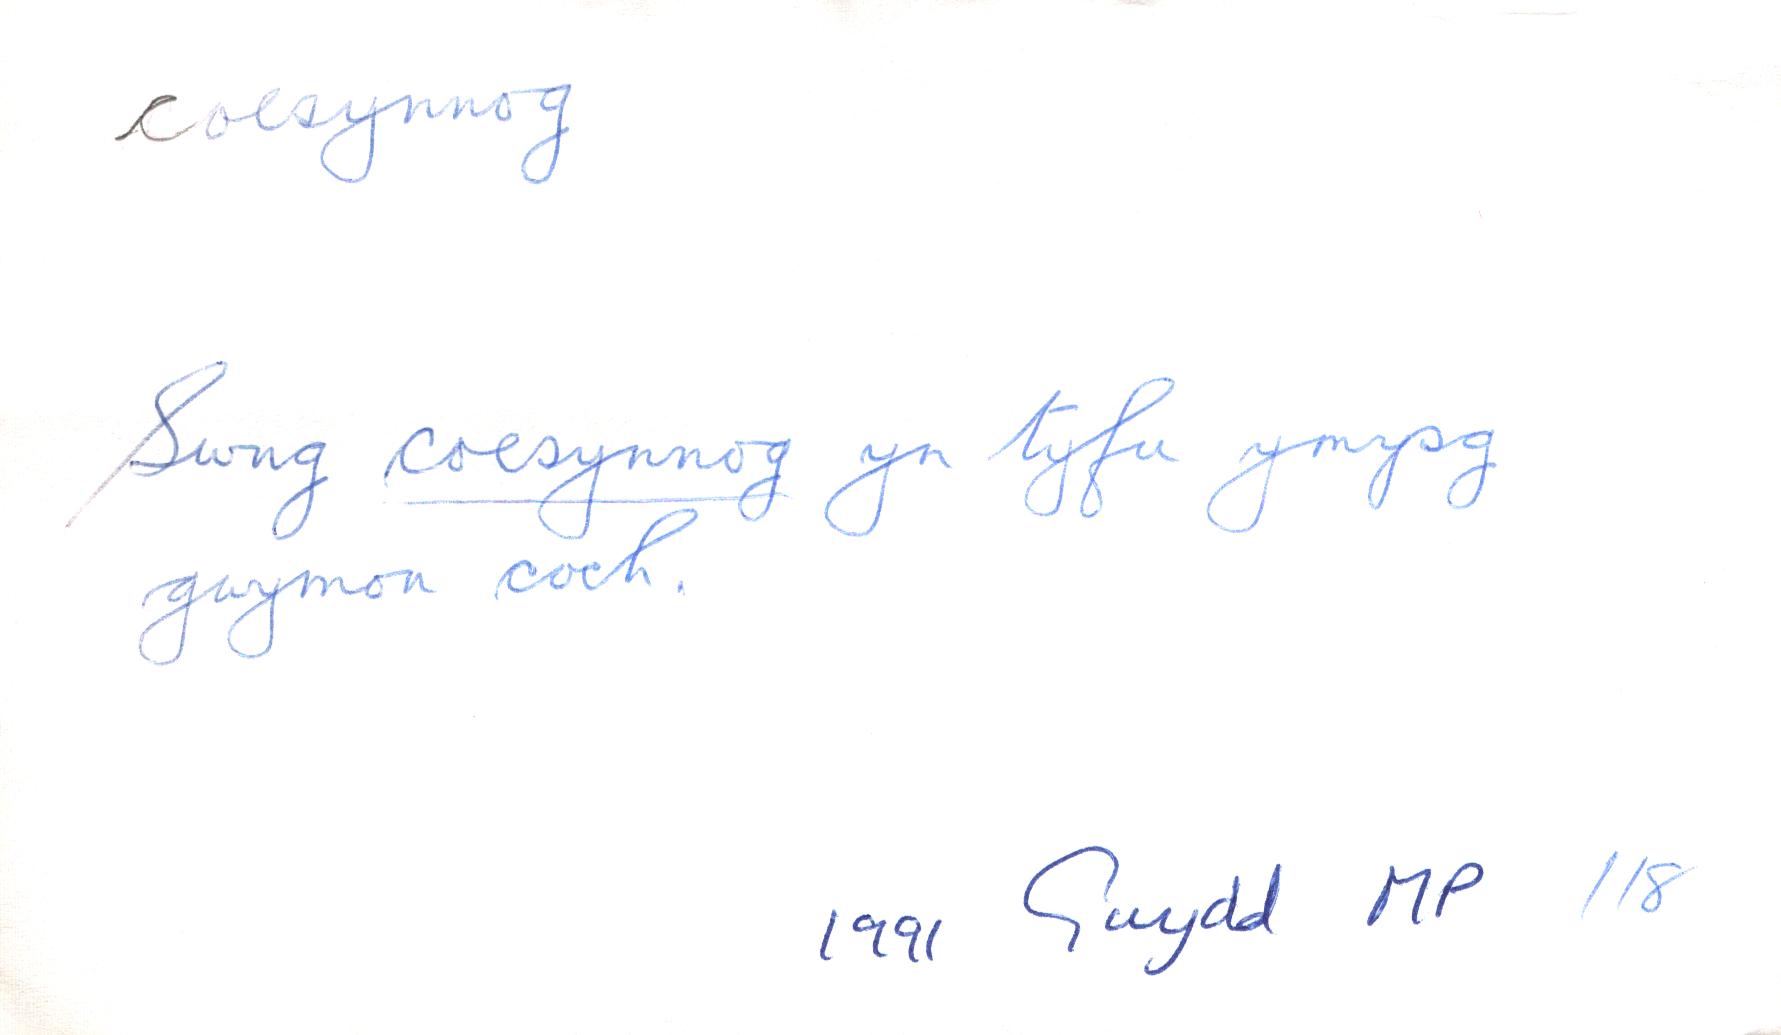 coesynnog
Swng coesynnog yn tyfu ymysg
gwymon coch.
1991 Gwydd MP 118